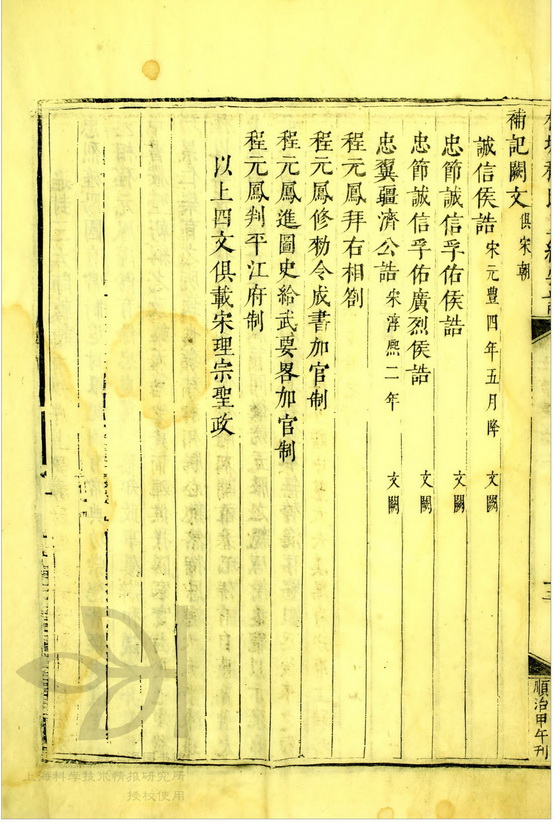 補記闕文 俱宋朝
誠信侯誥 宋元豐四年五月降 文闕
忠節誠信孚佑侯誥 文闕
忠節誠信孚佑廣烈侯誥 文闕
忠翼疆濟公誥 宋淳熈二年 文闕
程元鳳拜右相劄
程元鳳修勑令成書加官制
程元鳳進圖史給武要畧加官制
程元鳳判平江府制
以上四文俱載宋理宗聖政
順治甲午刊
上海科学技术情报研究所
授权使用